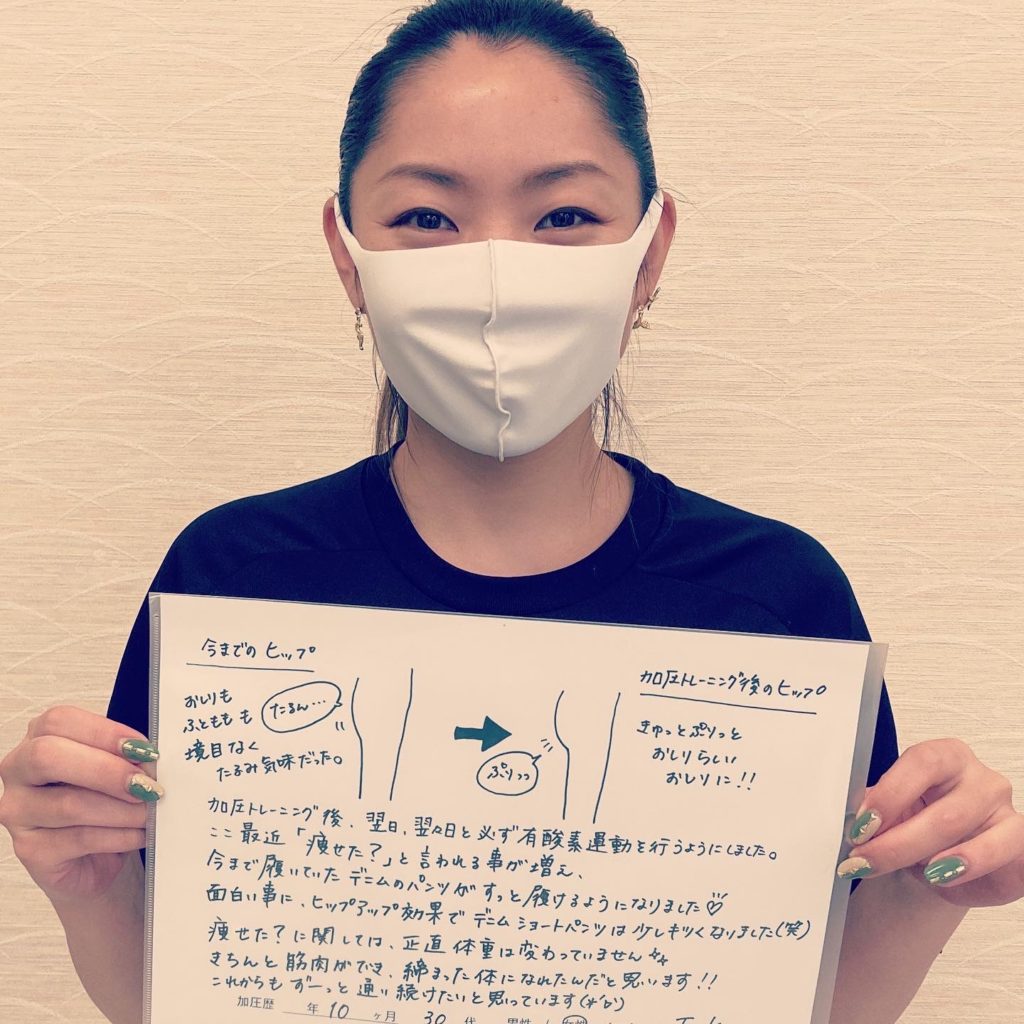 今までのヒップ
加圧トレーニング後のヒップ
おしりも
ふとももも
境目なく
たるみ気味だった。
たるん…
ぷりっっ
きゅっとぷりっと
おしりらしい
おしりに!!
加圧トレーニング後、翌日、翌々日と必ず有酸素運動を行うようにしました。
ここ最近「痩せた?」と言われる事が増え、
今まで履いていたデニムのパンツがすっと履けるようになりました♡
面白い事に、ヒップアップ効果でデニムショートパンツは少しキツくなりました(笑)
痩せた?に関しては、正直体重は変わっていません
きちんと筋肉ができ、締まった体になれたんだと思います!!
これからもずーっと通い続けたいと思っています
加圧歴 年 10 ヶ月 30 代 男性 / 女性